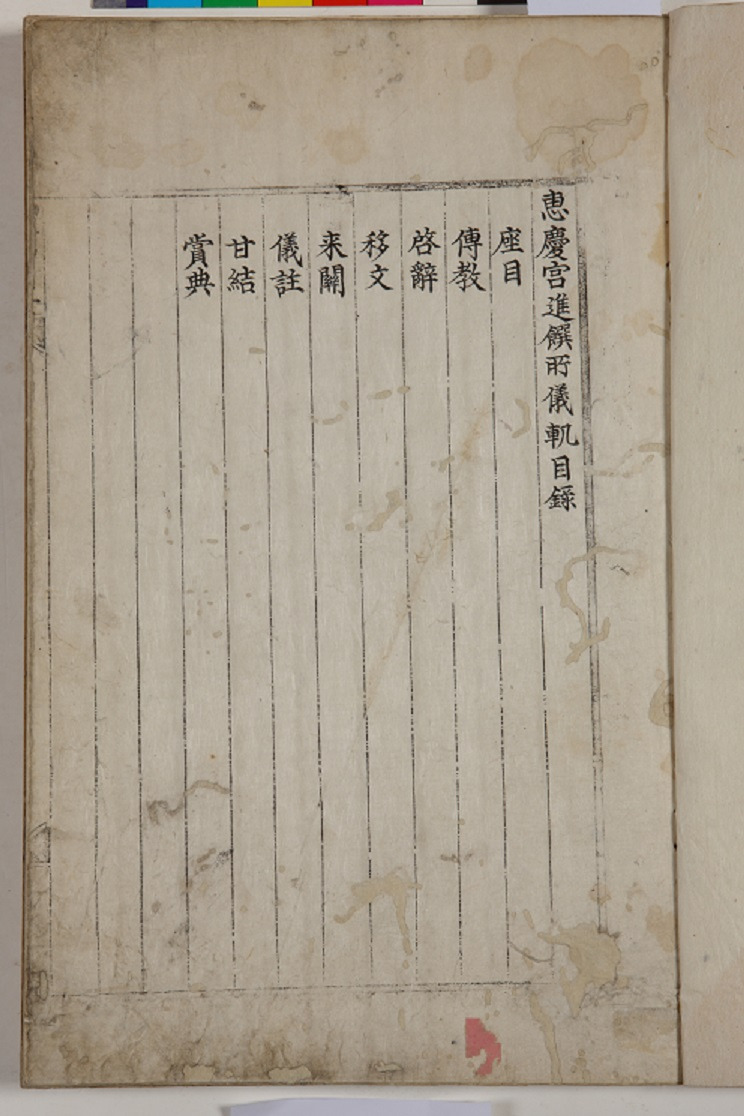 惠慶宮進饌所儀軌目錄
座目
傳教
啓辭
移文
来關
儀註
甘結
賞典